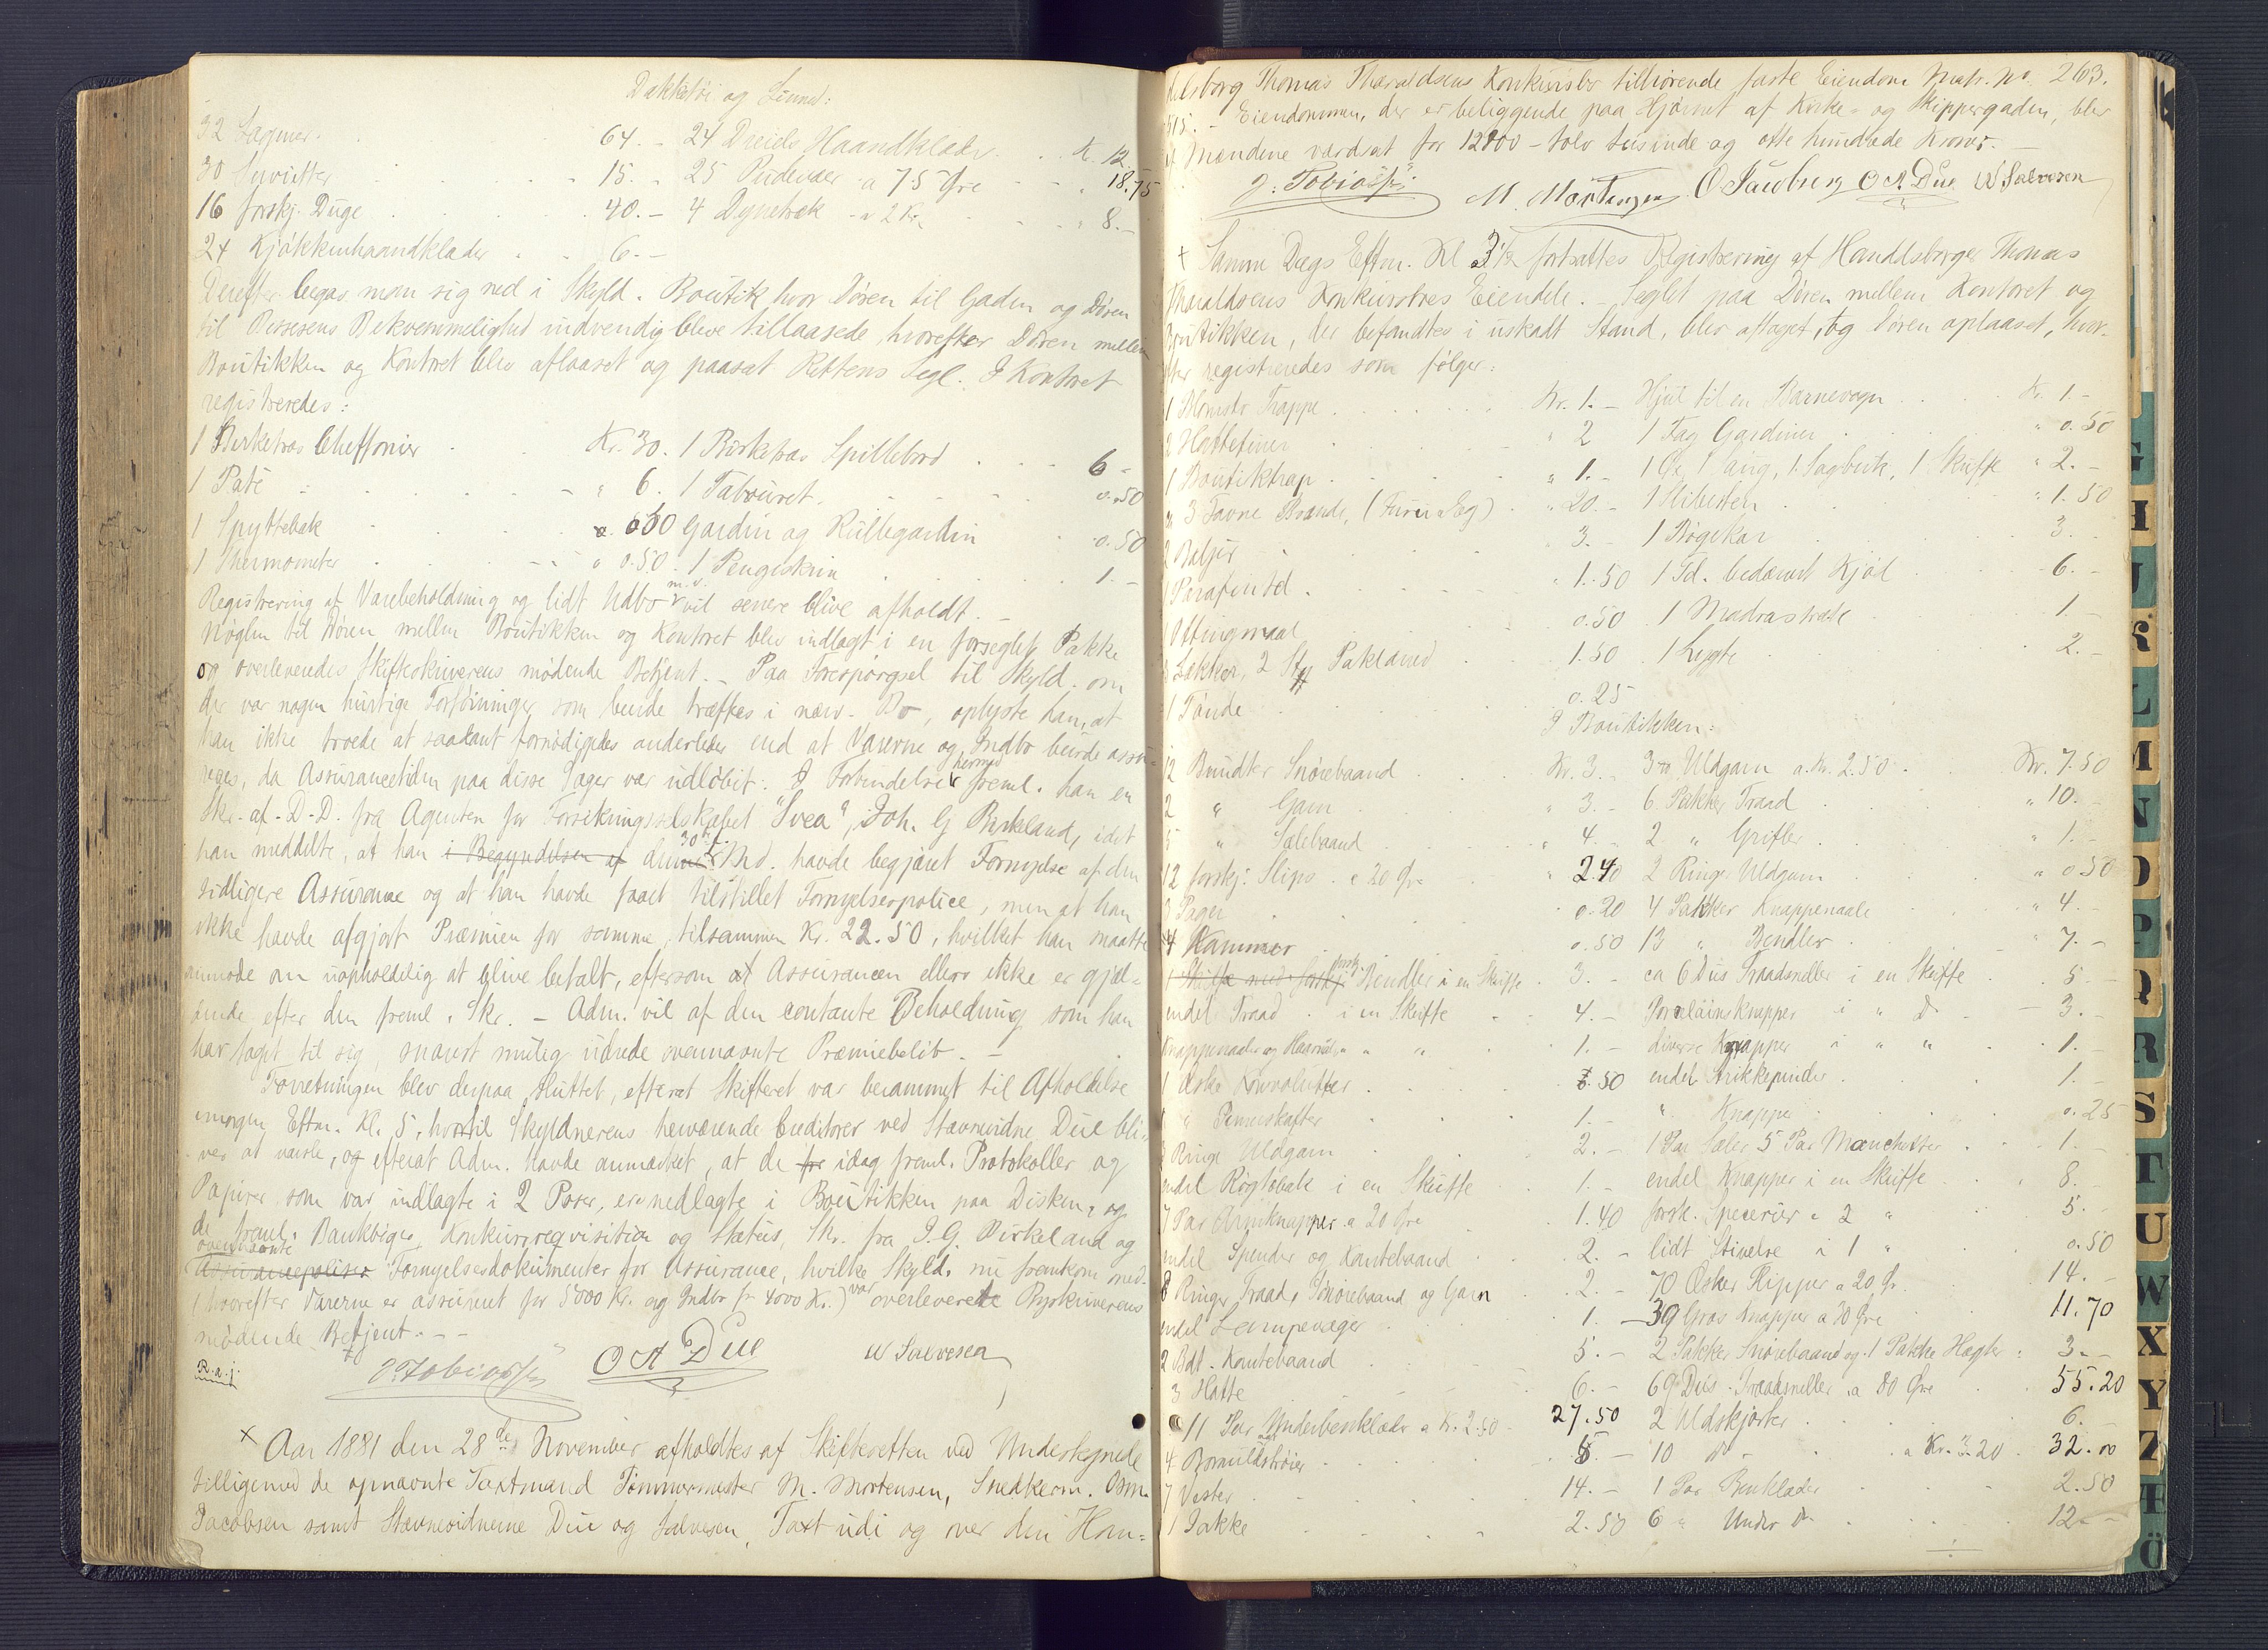 Dækketøi og Linned:
32 Lagner . . 64. - 24 Dreiels Haandklæder . . K. 12.
30 Servietter . . 15. - 25 Pudevaer a 75 Øre - - " 18.75
16 forskj. Duge . . 40. - 4 Dynetræk - a 2 Kr. - . " 8. -
24 Kjøkkenhaandklæder . . 6. -
Derefter begav man sig ned i Skyld. Boutik hvor Døren til Gaden og Døren
til Bekvemmelighed indvendig bleve tillaasede, hvorefter Døren mellem
Boutikken og Kontoret blev aflaaset og paasat Rettens Segl. I Kontoret
registreredes:
1 Birketræs Cheffonier . . Kr. 30. 1 Birketræs Spillebord . . . 6 -
1 Paté - - - - " 6. 1 Tabouret. - - - 0.50
1 Spyttebak . . 0.50 Gardin og Rullegardin . 0.50
1 Thermometer . . " 0.50. 1 Pengeskrin . . . 1. -
Registrering af Varebeholdning og lidt Udbo m.v. vil senere blive afholdt. -
Nøglen til Døren mellem Boutikken og Kontoret blev indlagt i en forseglet Pakke
og overleveredes Skifteskriverens mødende Betjent. - Paa Forespørgsel til Skyld. om
der var nogen hurtige Forføininger som burde træffes i nærv. Bo, oplyste han, at
han ikke troede at saadant fornødigedes anderledes end at Varerne og Indbo burde assu-
reres, da Assurancetiden paa disse Sager var udløbet: I Forbindelse hermed freml. han en
Skr. af D. D. fra Agenten for Forsikringsselskabet "Svea", Joh. G Birkeland, idet
han meddelte, at han i Begyndelsen af denne 30te f. Md. havde begjæret Fornyelse af den
tidligere Assurance og at han havde faaet tilstillet Fornyelsespolice, men at han
ikke havde afgjort Præmien for samme, tilsammen Kr. 22.50, hvilket han maatte
anmode om uopholdelig at blive betalt, eftersom at Assurancen ellers ikke er gjæl-
dende efter den freml. Skr. - Adm. vil af den contante Beholdning som han
har taget til sig, snarest mulig udrede ovennævnte Præmiebeløb. -
Forretningen blev derpaa sluttet, efterat Skifteret var berammet til Afholdelse
imorgen Eftm. Kl. 5, hvortil Skyldnerens herværende Creditorer ved Stævnevidne Due bli-
ver at varsle, og efterat Adm. havde anmærket, at de fre idag freml. Protokoller og
Papirer som var indlagte i 2 Poser, ere nedlagte i Boutikken paa Disken, og
de freml. Bankbøger, Konkursrequisition og Status, Skr. fra J. G. Birkeland og
ovennævnte Assurancepolicer Fornyelsesdokumenter for Assurance, hvilke Skyld. nu fremkom med
(hvorefter Varerne er assureret for 5000 Kr. og Indbo for 4000 Kr.) var overleverede Byskriverens
mødende Betjent. - -
R. a. j. O. Tobiassen O A Due W Salvesen
+ Aar 1881 den 28de November afholdtes af Skifteretten ved Undertegnede
tilligemed de opnævnte Taxtmænd Tømmermester M. Mortensen, Snedkerm. Osm.
Jacobsen samt Stævnevidnerne Due og Salvesen, Taxt udi og over den Han-
delsborg Thomas Tharaldsens Konkursbo tilhørende faste Eiendom Matr. No 263.
515. - Eiendommen, der er beliggende paa Hjørnet af Kirke- og Skippergaden, blev
af Mændene værdsat for 12800 - tolv tusinde og otte hundrede Kroner. -
O. Tobiassen M. Mortensen O Jacobsen O A Due W Salvesen
+ Samme Dags Eftm. Kl 3½ fortsattes Registrering af Handelsborger Thomas
Tharaldsens Konkursboes Eiendele. - Seglet paa Døren mellem Kontoret og
Boutikken, der befandtes i uskadt Stand, blev aftaget, og Døren oplaaset, hvor-
efter registreredes som følger:
1 Blomster Trappe . . . Kr. 1. - Hjul til en Barnevogn . . Kr. 1. -
2 . . " 2 1 Fag Gardiner . . " 0.50
1 Boutiktrap . . " 1. - 1 Øx, 1 Saug, 1 Sagbuk, 1 Skuffe " 2. -
3 Favne Brænde, (Furu & Eg) . " 20. - 1 Slibesten . . " 1.50
2 Baljer - . . " 3. - 1 Bøgekar . . 3. -
1 . . " 1.50 1 Td. bedærvet Kjød . . 6. -
1 Ottingmaal . . 0.50 1 Madrastræk . . 1. -
Sække, 2 Stk . 1.50 1 Lygte . . 2. -
1 Tønde . . 0.25
I Boutikken:
12 Bundter Snørebaand . . Kr. 3. - 3 Uldgarn a Kr. 2.50 . Kr. 7.50
2 " Garn . " 3. - 6 Pakker Traad . " 10. -
5 " Sælebaand . . " 4. - 2 " Grifler . " 1. -
12 forskj. Slips a 20 Øre - " 2.40 2 Ringe Uldgarn . " 0.50
. . 0.20 4 Pakker Knappenaale . " 4. -
4 Kammer . . 0.50 13 " Bendler . " 7. -
1 Skuffe med forskj. forskj. Bendler i en Skuffe . 3. - ca 6 Dus Traadsneller i en Skuffe . 5 -
endel Traad . i en Skuffe - 4. - Porcelainsknapper i " Do - 3. -
Knappenaaler og Haarnaale " " . 1. - diverse Knapper i " " . 1. -
1 Æske . . 50 endel Strikkepinder . . 1. -
1 " Penneskafter . . 1. - " Knapper . . 0.25
Ringe Uldgarn . . 2. - 1 Par Sæler 5 Par Manchetter . 1. -
endel Røgtobak i en Skuffe . 1. - endel Knapper i en Skuffe . . 8. -
7 Par Armknapper a 20 Øre . 1.40 forsk. Specerier i 2 " . 5. -
endel Spænder og Kantebaand . 2. - lidt Stivelse i 1 " . 0.50
8 Ringer Traad, Snørebaand og Garn . 2. - 70 Æsker Ripper a 20 Ør . 14. -
endel Lampevæger . . 1. - 39 Gros Knapper a 30 Øre . 11.70
2 Bdt. Kantebaand . . 5. - 2 Pakker Snørebaand og 1 Pakke Hægter . 3. -
3 Hatte . . 6. - 69 Dus. Traadsneller a 80 Øre . 55.20
11 Par Underbenklæder a Kr. 2.50 - 27.50 2 Uldskjorter . . 6. -
4 Bomuldstrøier . . 5. - 10 do - . a Kr. 3.20 . 32.00
7 Vester . . 14. - 1 Par Benklæder . . 2.50
1 Jakke . . 2.50 6 " Under Do . . 12. -
G
H
J
K
L
M
N
O
P
Q
R
S
T
U
W
X
Y
Z
Æ
Ö